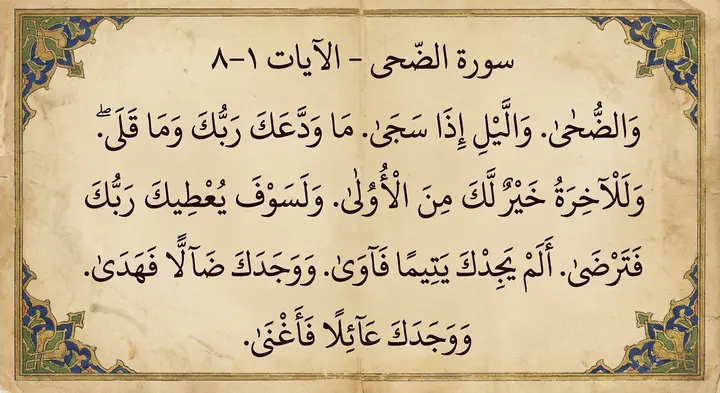 سورة الضّحى - الآيات ١-٨
وَالضُّحٰىۙ. وَالَّيْلِ إِذَا سَجَىٰ. مَا وَدَّعَكَ رَبُّكَ وَمَا قَلَىٰۖ.
وَلَلْآخِرَةُ خَيْرٌ لَّكَ مِنَ الْأُوْلٰى. وَلَسَوْفَ يُعْطِيكَ رَبُّكَ
فَتَرْضَىٰ. أَلَمْ يَجِدْكَ يَتِيمًا فَآوَىٰ. وَوَجَدَكَ ضَآلًّا فَهَدَىٰ.
وَوَجَدَكَ عَآئِلًا فَأَغْنَىٰ.